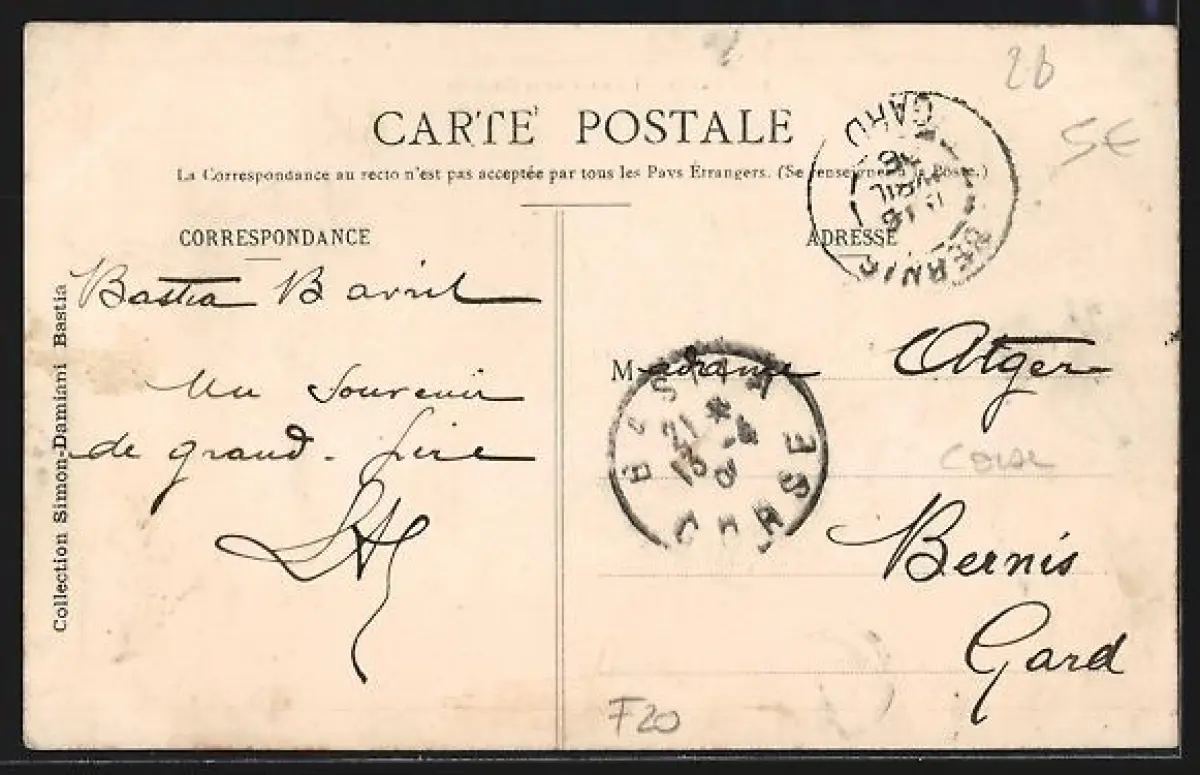 2b
5€
CARTE POSTALE
La Correspondance au recto n'est pas acceptée par tous les Pays Étrangers. (Se renseigner à la Poste.)
CORRESPONDANCE
ADRESSE
BERNIS
GARD
AVRIL
Bastia 13 avril
Un Souvenir
de grand-père
Collection Simon-Damiani Bastia
Madame Atger
Bernis
Gard
BASTIA
CORSE
Corse
F20